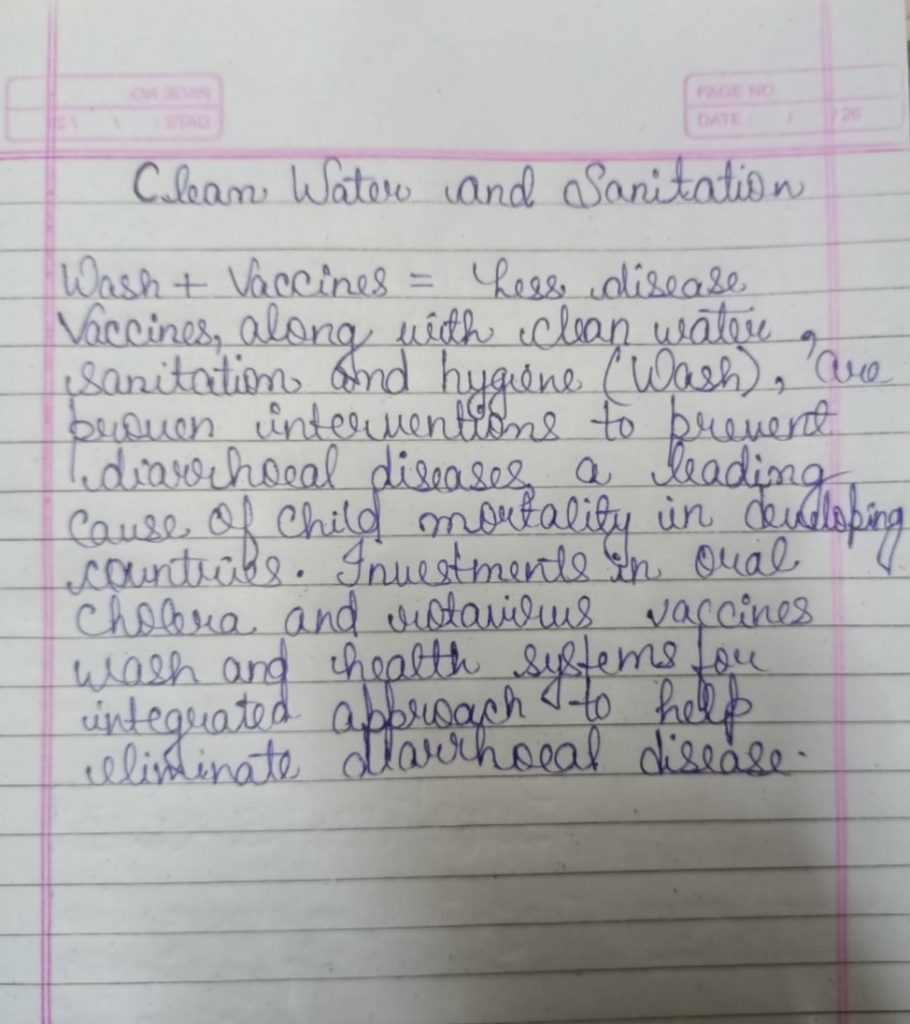 PAGE NO.
DATE: / /20
Clean Water and Sanitation
Wash + Vaccines = Less disease
Vaccines, along with clean water,
sanitation and hygiene (Wash), are
proven interventions to prevent
diarrhoeal diseases a leading
cause of child mortality in developing
countries. Investments in oral
cholera and rotavirus vaccines
wash and health systems for
integrated approach to help
eliminate diarrhoeal disease.